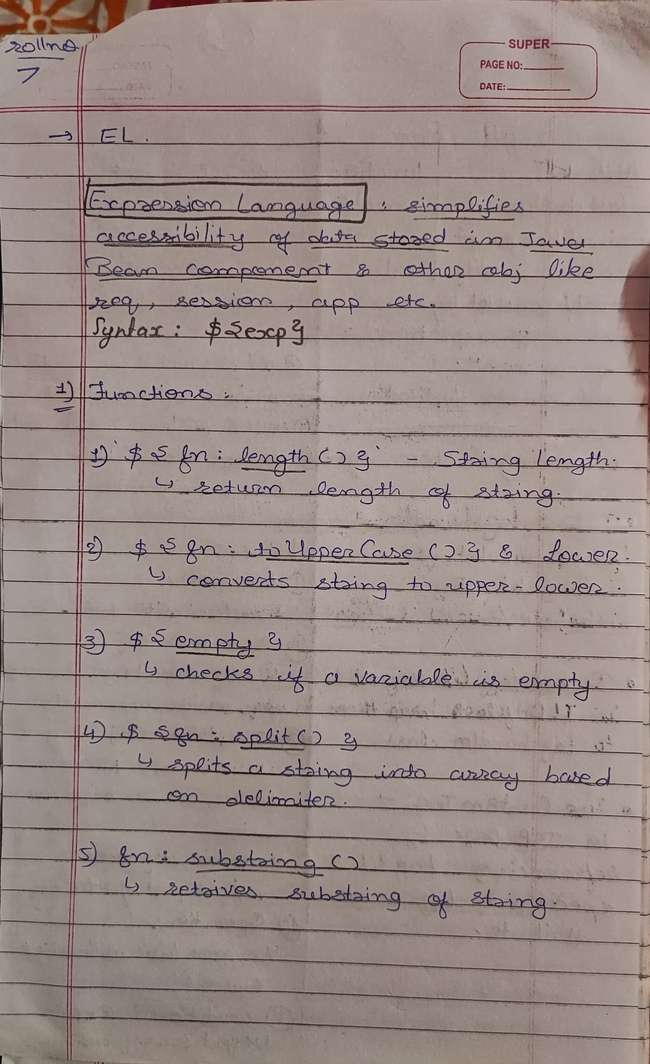 rollno
7
SUPER
PAGE NO:
DATE:
→ EL.
Expression Language : simplifies
accessibility of data stored in Java
Bean component & other obj like
req, session, app etc.
Syntax : ${exp}
1) Functions :
1) ${fn : length()} - String length.
↳ return length of string.
2) ${fn : toUpperCase()} & Lower.
↳ converts string to upper-lower.
3) ${empty}
↳ checks if a variable is empty
4) ${fn : split()}
↳ splits a string into array based
on delimiter.
5) fn : substring()
↳ retrives substring of string.